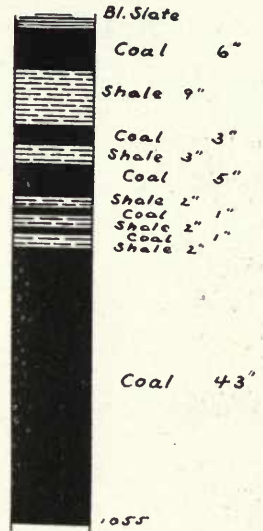 Bl. Slate
Coal 6"
Shale 9"
Coal 3"
Shale 3"
Coal 5"
Shale 2"
Coal 1"
Shale 2"
Coal 1"
Shale 2"
Coal 43"
1055